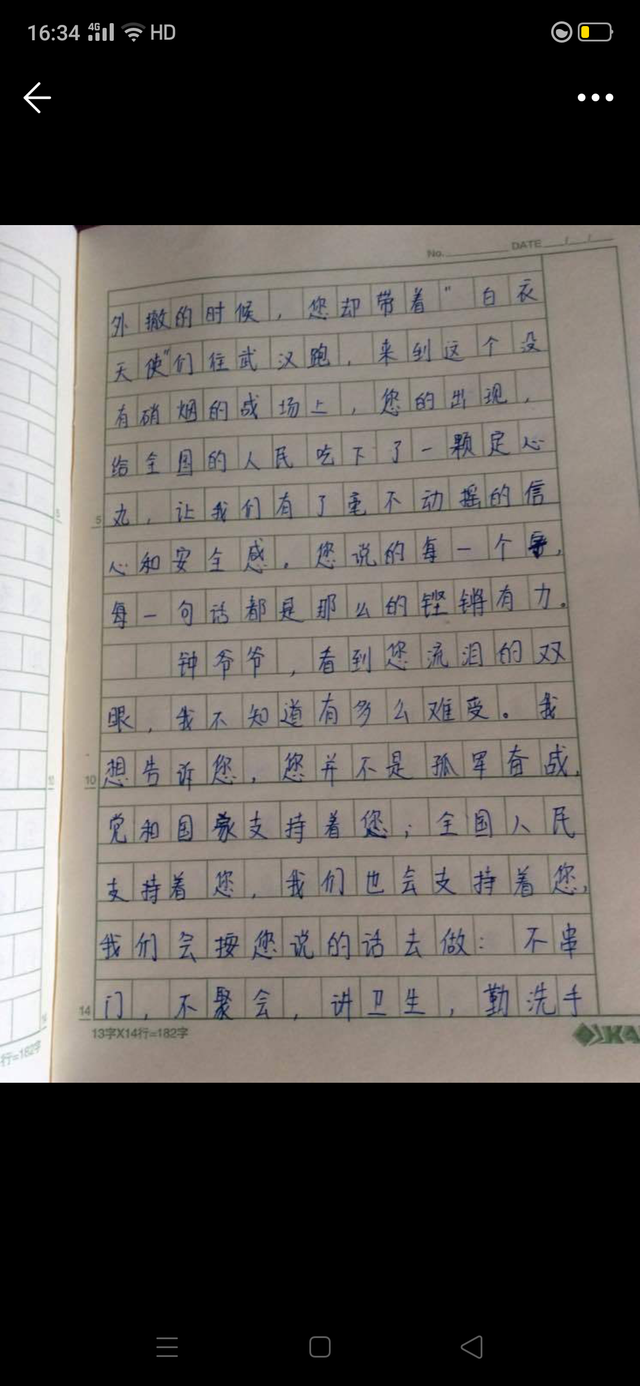 16:34 4G HD
No. DATE / /
外撤的时候，您却带着“白衣
天使”们往武汉跑，来到这个没
有硝烟的战场上，您的出现，
给全国的人民吃下了一颗定心
5 丸，让我们有了毫不动摇的信
心和安全感，您说的每一个字，
每一句话都是那么的铿锵有力。
钟爷爷，看到您流泪的双
眼，我不知道有多么难受。我
10 想告诉您，您并不是孤军奋战，
党和国家支持着您；全国人民
支持着您，我们也会支持着您，
我们会按您说的话去做：不串
14 门，不聚会，讲卫生，勤洗手
13字X14行=182字
行=182字